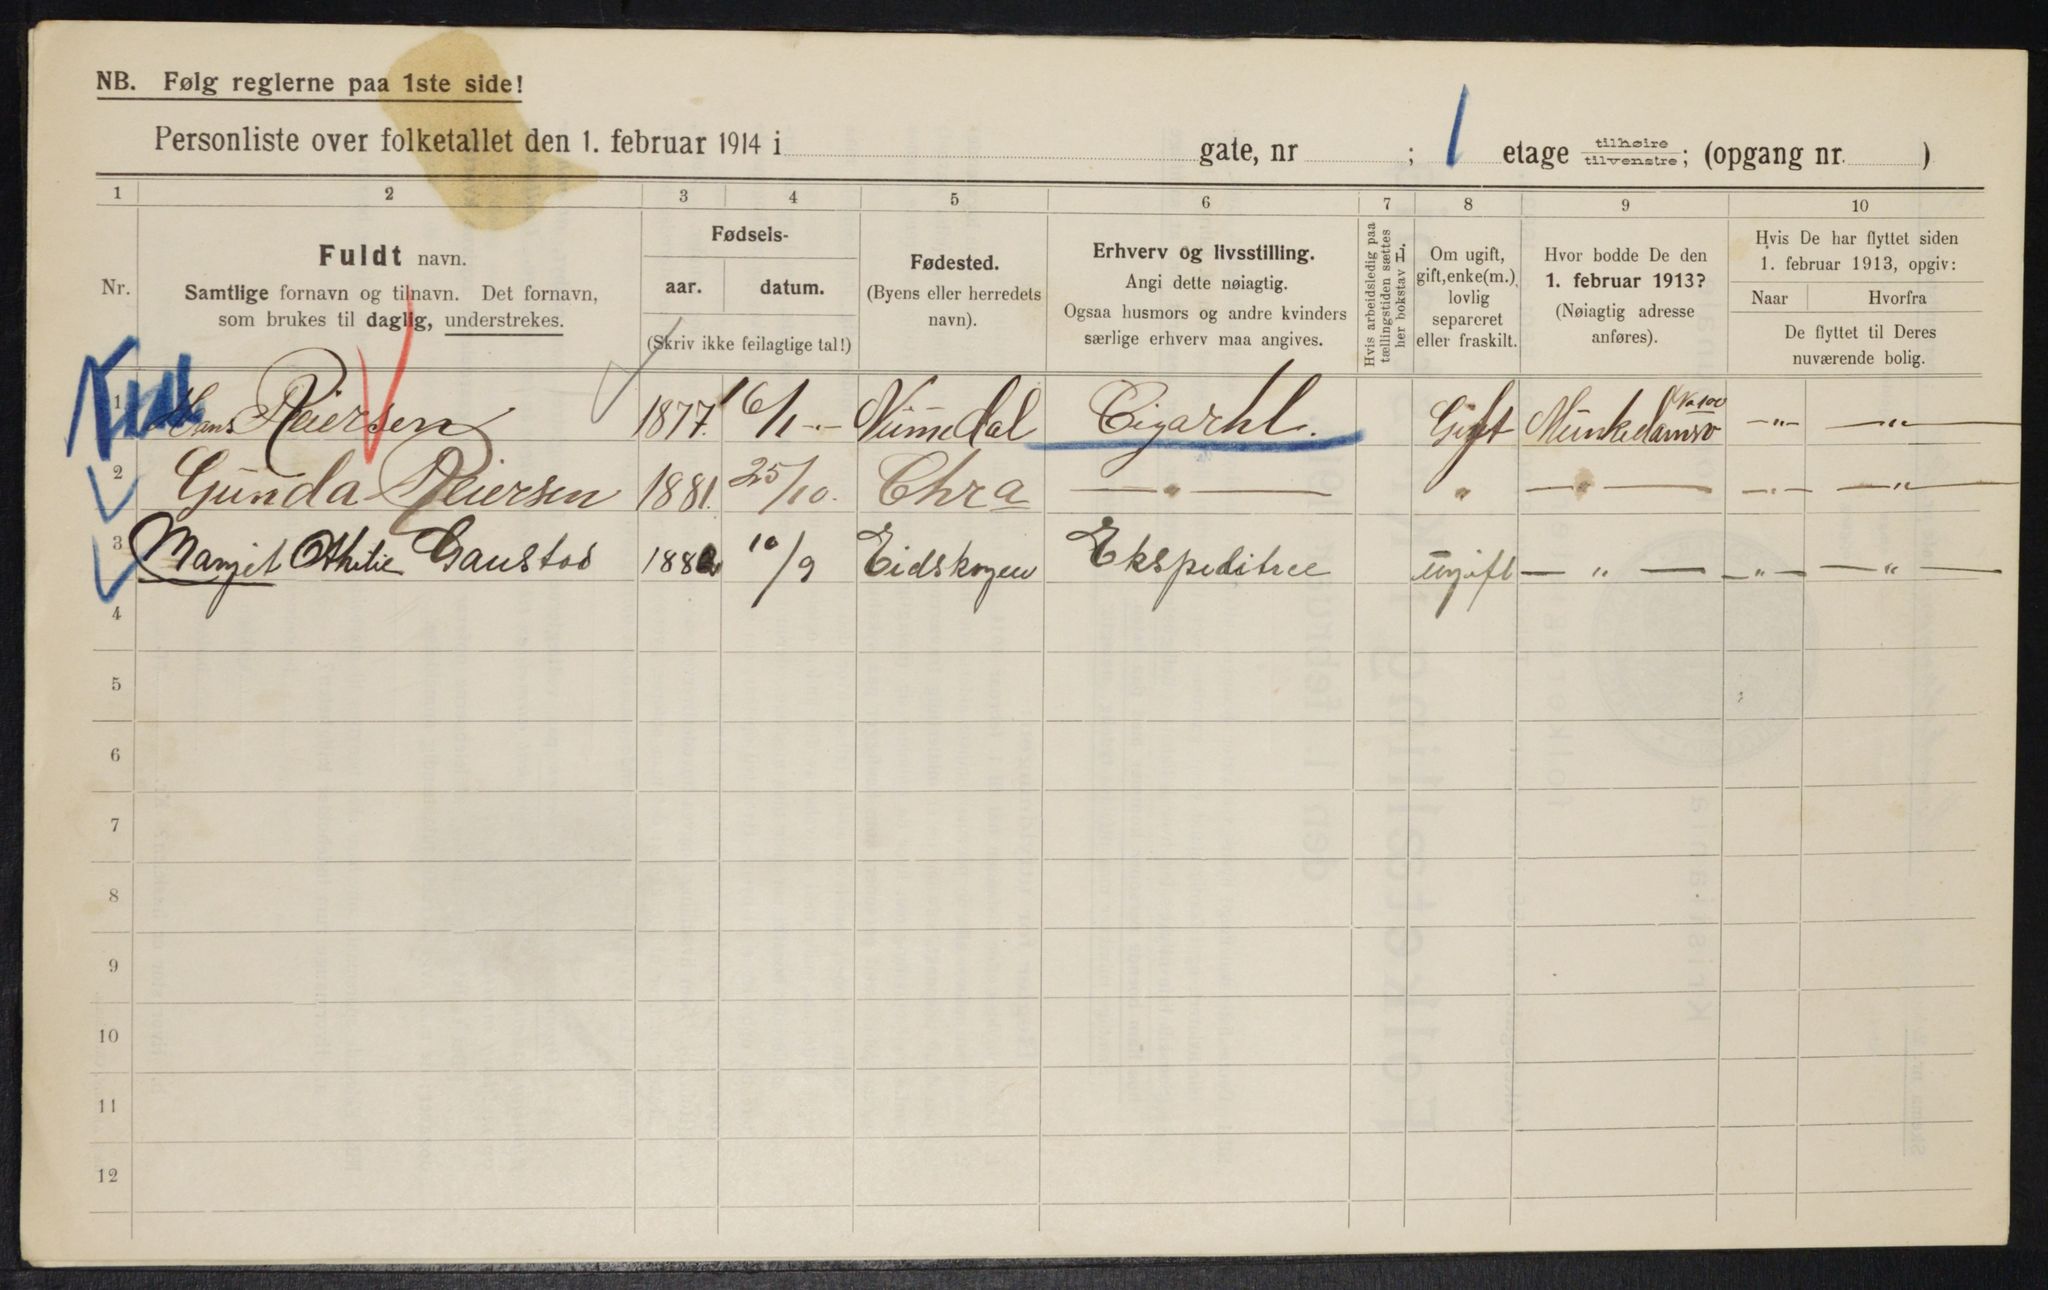 NB. Følg reglerne paa 1ste side!
Personliste over folketallet den 1. februar 1914 i gate, nr ; 1 etage tilhøire/tilvenstre; (opgang nr. )
1 2 3 4 5 6 7 8 9 10
Nr.
Fuldt navn.
Samtlige fornavn og tilnavn. Det fornavn,
som brukes til daglig, understrekes.
Fødsels-
aar. datum.
(Skriv ikke feilagtige tal!)
Fødested.
(Byens eller herredets
navn).
Erhverv og livsstilling.
Angi dette nøiagtig.
Ogsaa husmors og andre kvinders
særlige erhverv maa angives.
Hvis arbeidsledig paa
tællingstiden sættes
her bokstav L.
Om ugift,
gift, enke(m.),
lovlig
separeret
eller fraskilt.
Hvor bodde De den
1. februar 1913?
(Nøiagtig adresse
anføres).
Hvis De har flyttet siden
1. februar 1913, opgiv:
Naar Hvorfra
De flyttet til Deres
nuværende bolig.
1 Hans Reiersen 1877. 16/1 Numedal Cigarhl. Gift Munkedamsv No 100 —"— —"—
2 Gunda Reiersen 1881. 25/10. Chra —"— " —"— —"— —"—
3 Margit Gaustad 10/9 Eidskogen Ekspeditrice Ugift —"— —"— —"—
4
5
6
7
8
9
10
11
12